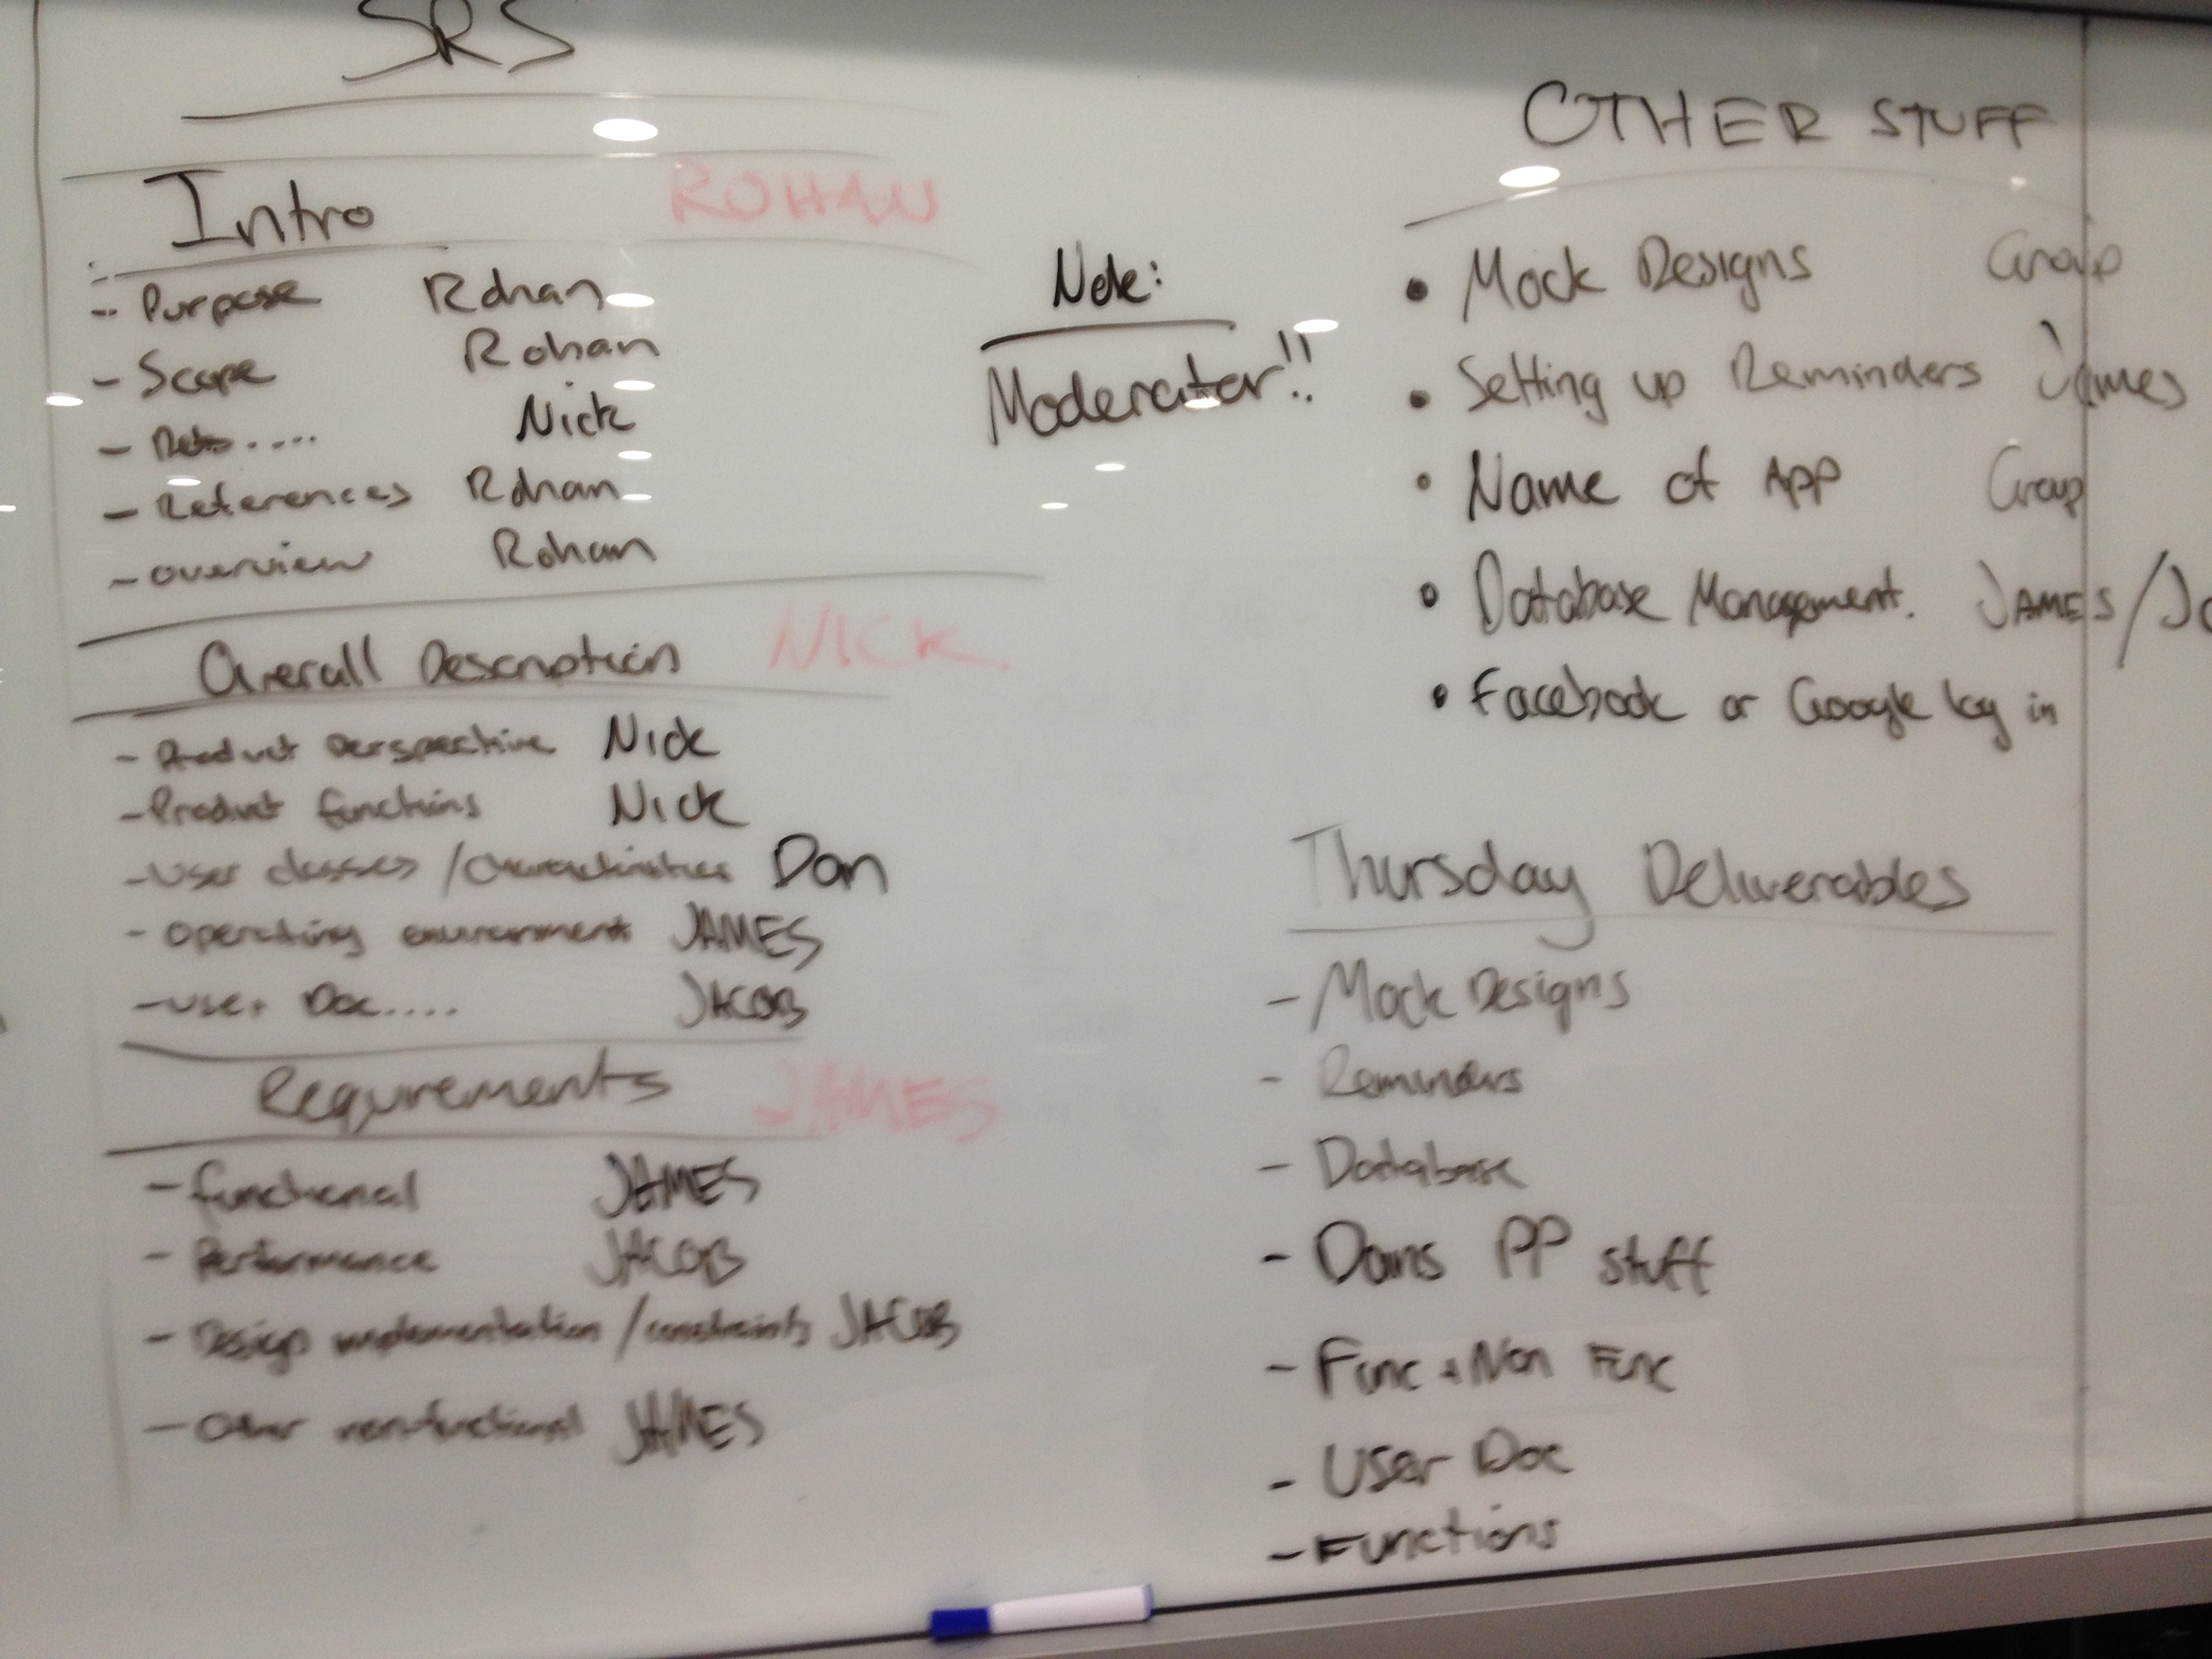 SRS
Intro ROHAN
- Purpose Rohan
- Scope Rohan
- Defs..... Nick
- References Rohan
- overview Rohan
Overall Description NICK
- Product perspective Nick
- Product functions Nick
- User classes / characteristics Dan
- Operating environment JAMES
- User Doc.... JACOB
Requirements JAMES
- functional JAMES
- Performance JACOB
- Design implementation / constraints JACOB
- Other non-functional JAMES
Note:
Moderator!!
OTHER STUFF
• Mock Designs Group
• Setting up Reminders James
• Name of App Group
• Database Management. JAMES /
• Facebook or Google log in
Thursday Deliverables
- Mock Designs
- Reminders
- Database
- Dans PP stuff
- Func + Non Func
- User Doc
- Functions